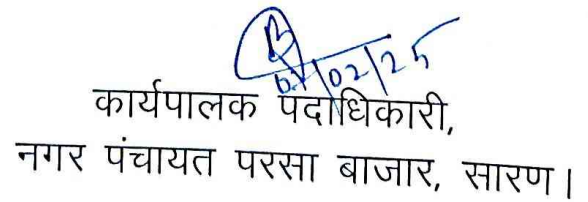 01/02/25
कार्यपालक पदाधिकारी,
नगर पंचायत परसा बाजार, सारण।